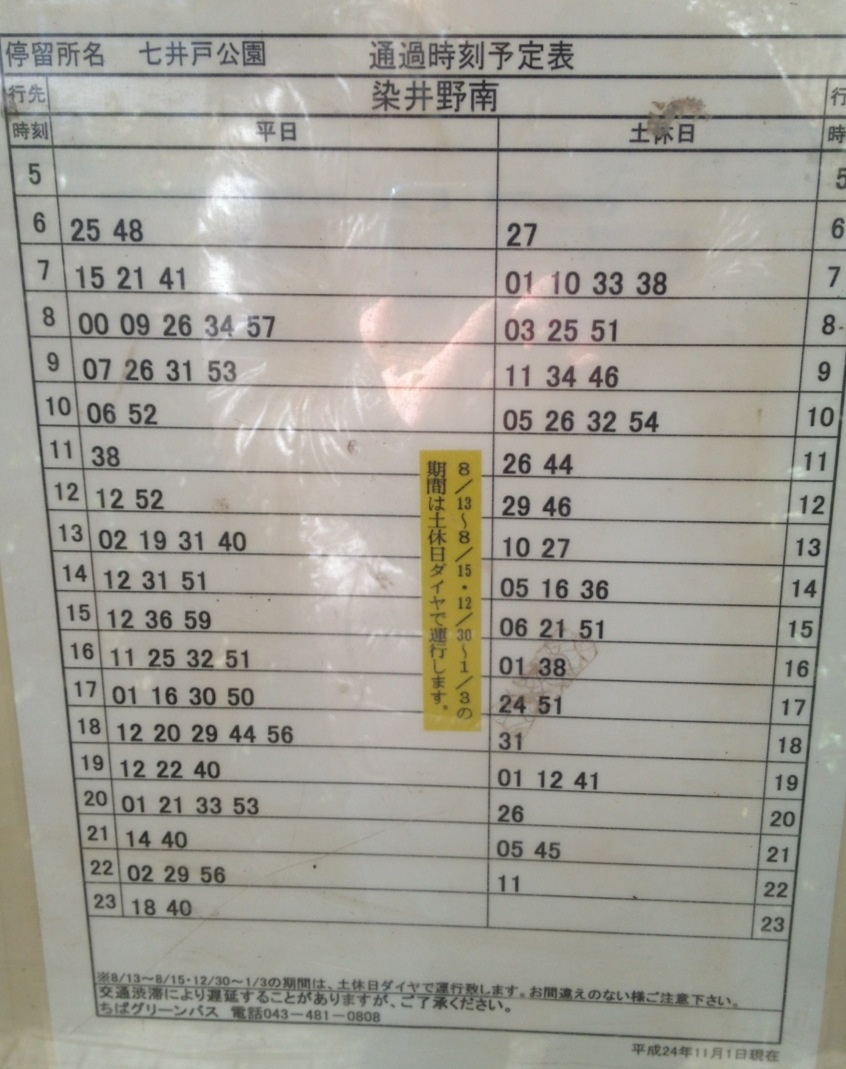 停留所名 七井戸公園 通過時刻予定表
行先 染井野南 行
時刻 平日 土休日 時
5 5
6 25 48 27 6
7 15 21 41 01 10 33 38 7
8 00 09 26 34 57 03 25 51 8
9 07 26 31 53 11 34 46 9
10 06 52 05 26 32 54 10
11 38 26 44 11
12 12 52 29 46 12
13 02 19 31 40 10 27 13
14 12 31 51 05 16 36 14
15 12 36 59 06 21 51 15
16 11 25 32 51 01 38 16
17 01 16 30 50 24 51 17
18 12 20 29 44 56 31 18
19 12 22 40 01 12 41 19
20 01 21 33 53 26 20
21 14 40 05 45 21
22 02 29 56 11 22
23 18 40 23
8/13～8/15・12/30～1/3の
期間は土休日ダイヤで運行します。
※8/13～8/15・12/30～1/3の期間は、土休日ダイヤで運行致します。お間違えのない様ご注意下さい。
交通渋滞により遅延することがありますが、ご了承ください。
ちばグリーンバス 電話043－481－0808
平成24年11月1日現在